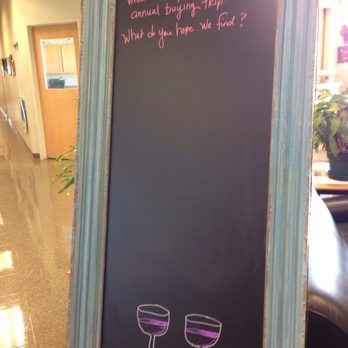 annual buying trip
What do you hope we find?